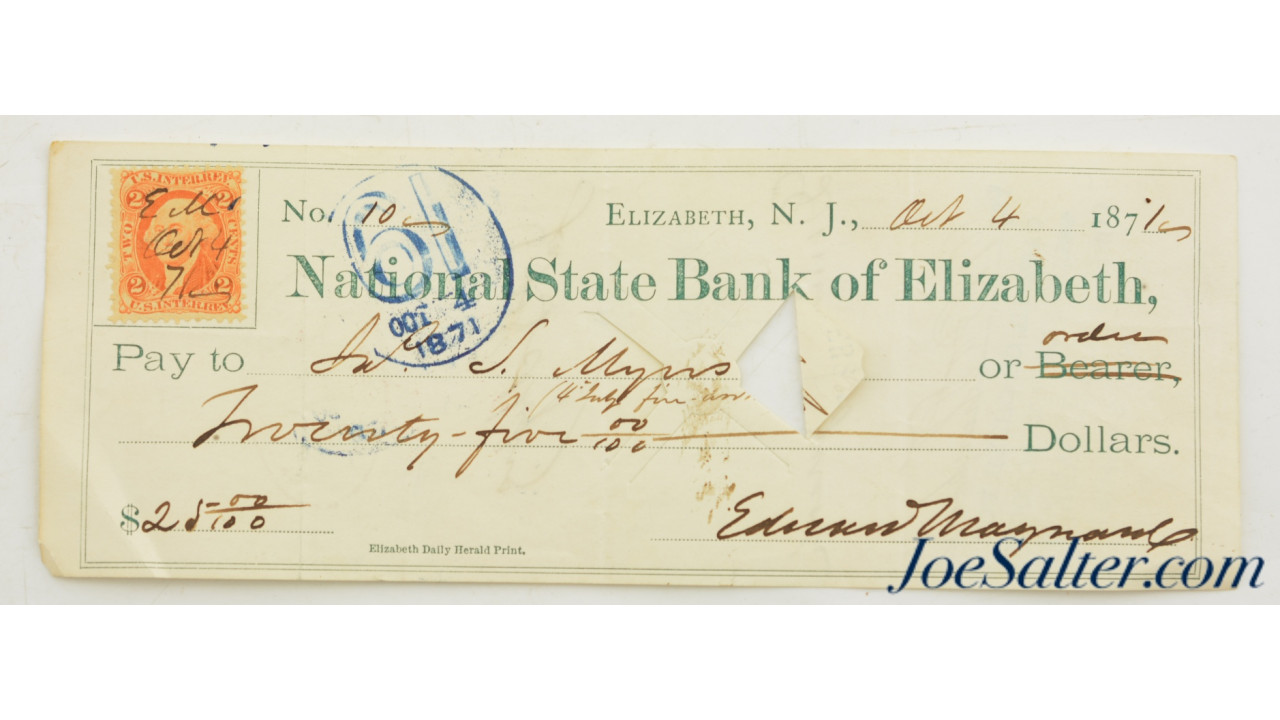 U.S. INTER. REV.
2 2
TWO CENTS
E M
Oct 4
71
2 2
U.S. INTER. REV.
No. 10
ELIZABETH, N. J., Oct 4 1871
61
OCT 4
1871
National State Bank of Elizabeth,
Pay to S. Myers or Bearer, order
Twenty-five 00/100 Dollars.
$25 00/100
Edward Maynard
Elizabeth Daily Herald Print.
JoeSalter.com